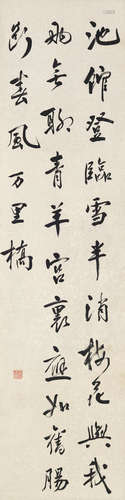 池館登臨雪半消梅花與我
两無聊青羊宮裏應如舊腸
断春風万里橋